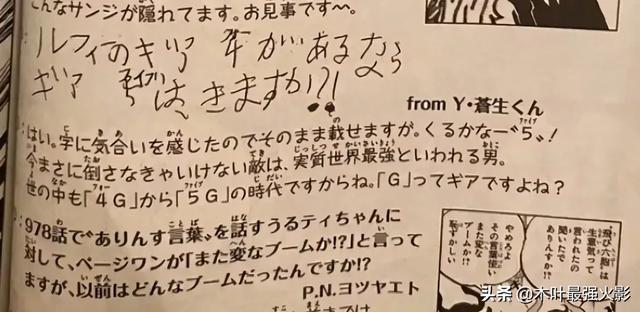 こんなサンジが隠れてます。お見事です〜。
ルフィのキア 年があるなら
ギア 5は、きますか!?!
from Y・蒼生くん
:はい。字に気合いを感じたのでそのまま載せますが。くるかなー〝5〟!
今まさに倒さなきゃいけない敵は、実質世界最強といわれる男。
世の中も「4G」から「5G」の時代ですからね。「G」ってギアですよね?
:978話で〝ありんす言葉〟を話すうるティちゃんに
対して、ページワンが「また変なブームか!?」と言って
ますが、以前はどんなブームだったんですか!?
P.N.ヨツヤエト
飛び六胞は
生意気って
言われたの
聞いたで
ありんすか?
やめろよ
その言葉使い
また変な
ブームか!?
恥ずかしい
头条 @木叶最强火影